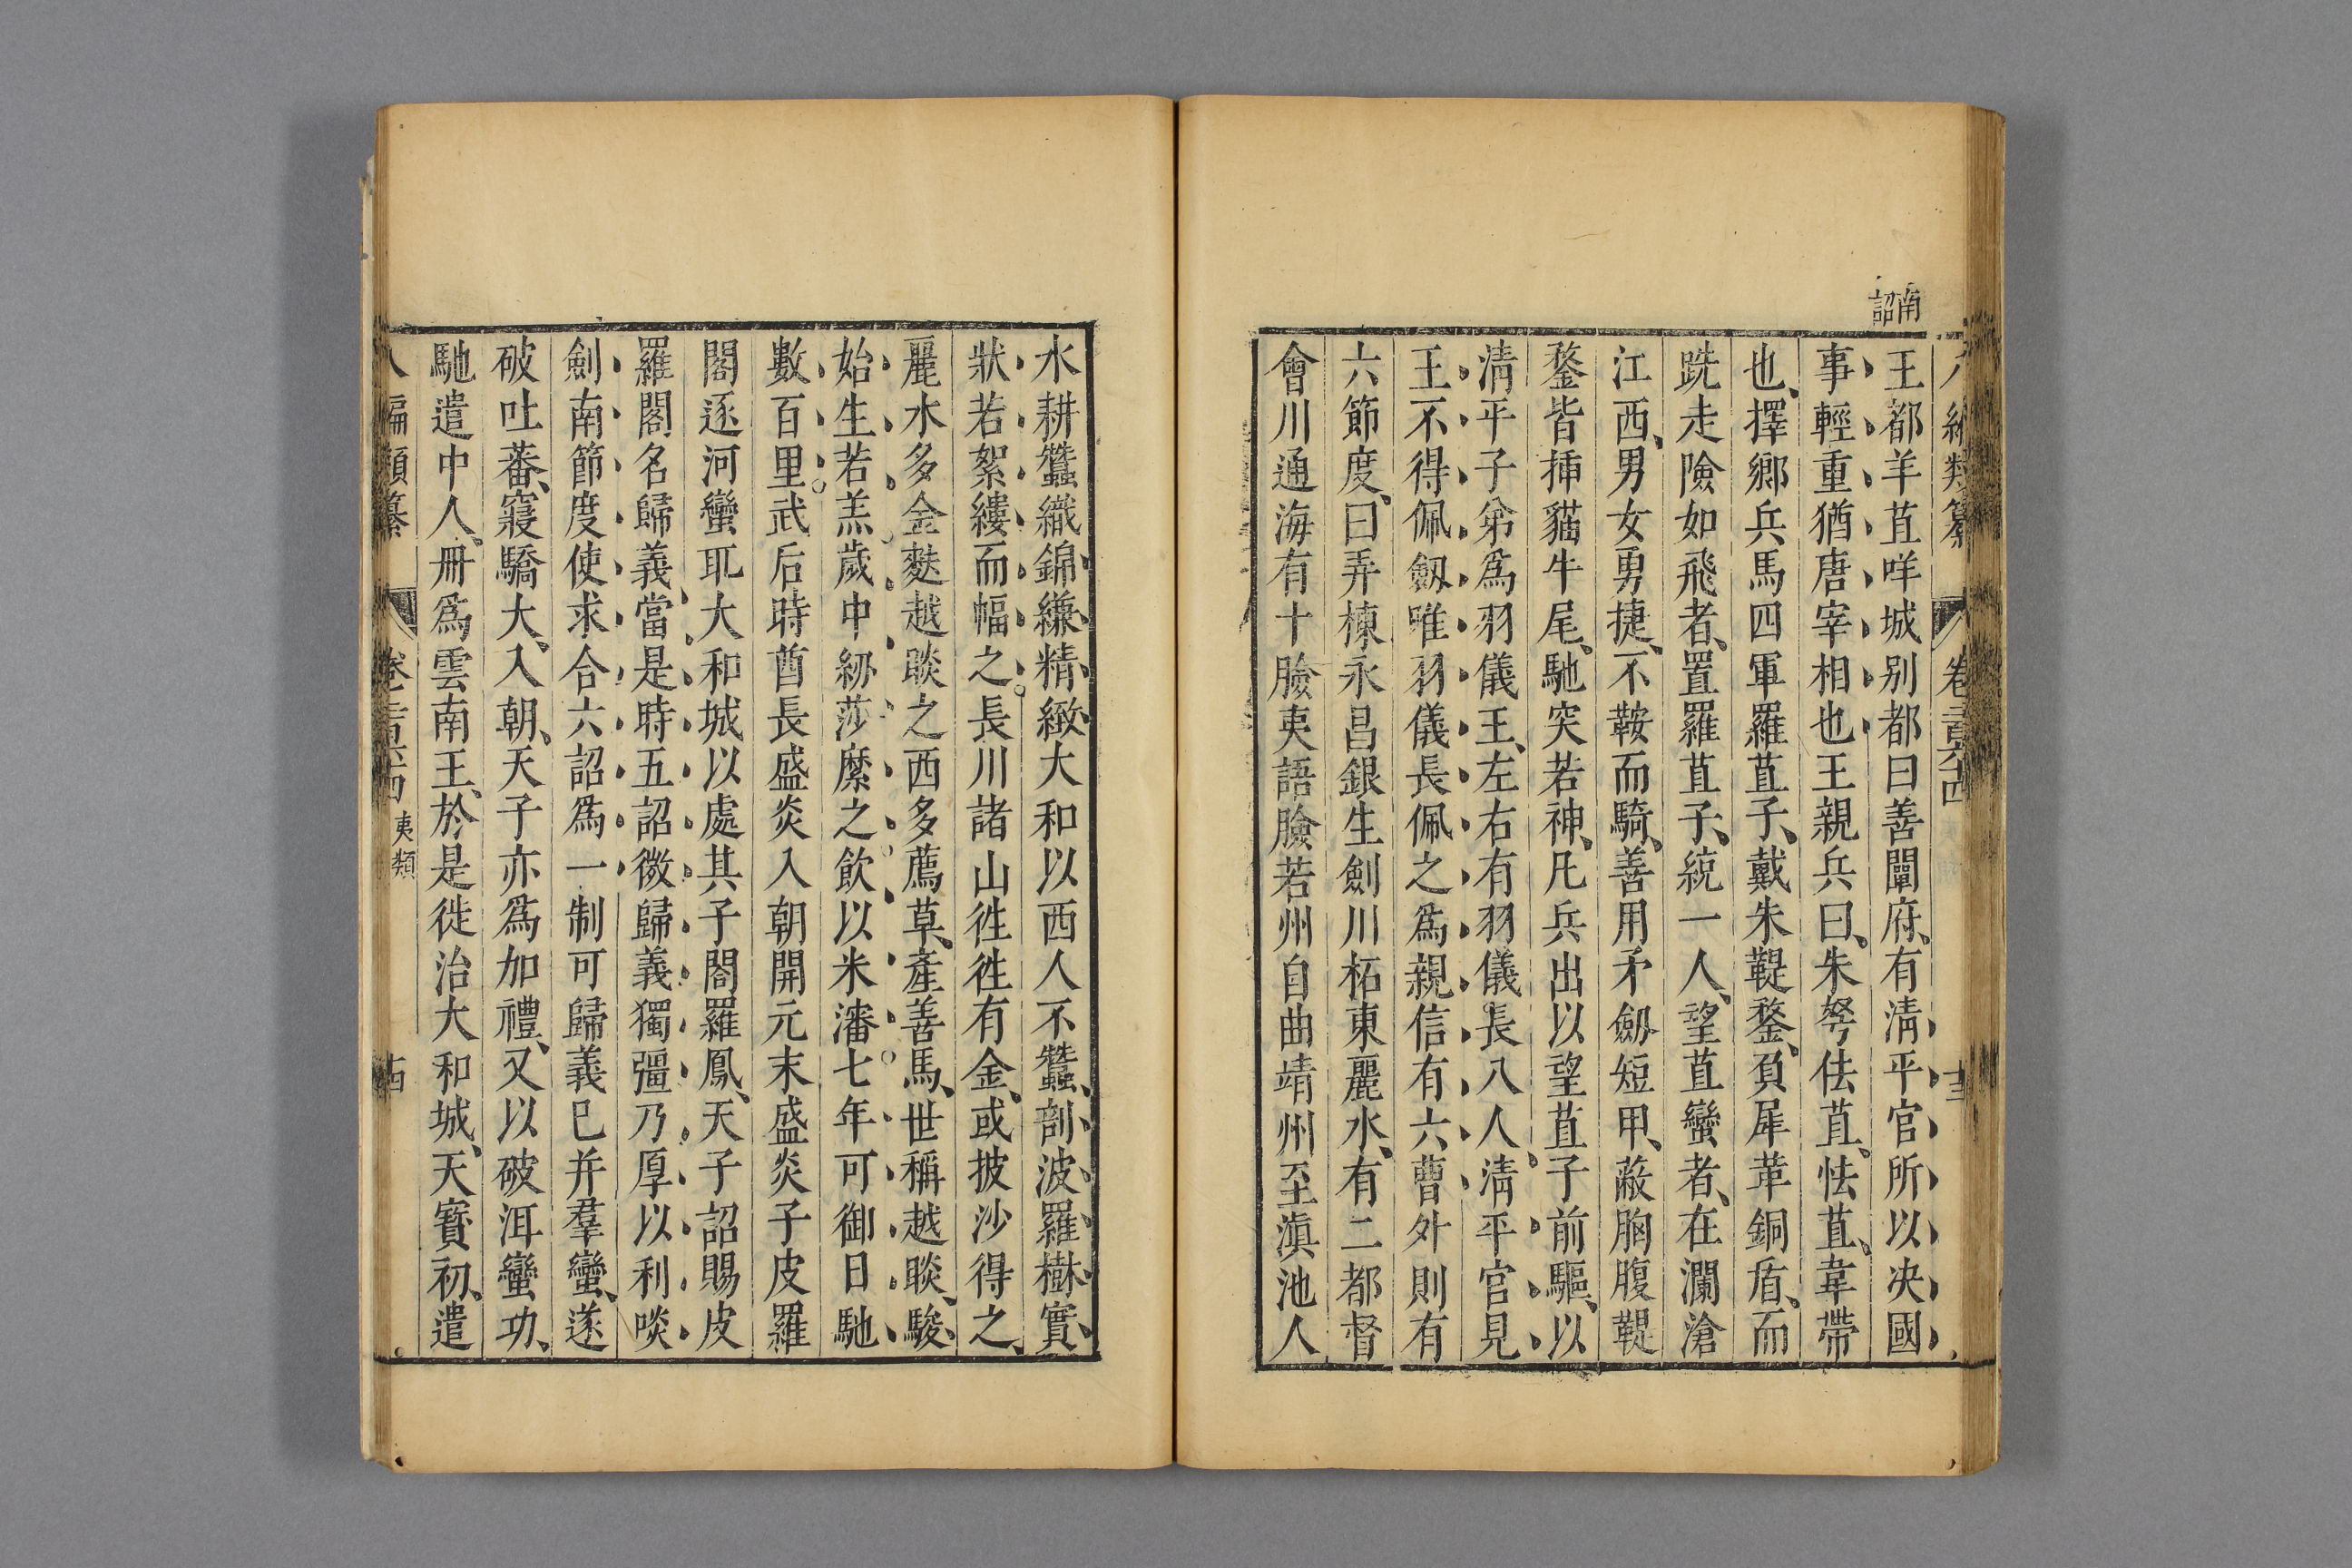 南
詔
王都羊苴咩城别都曰善闡府、有清平官所以决國
事輕重猶唐宰相也王親兵曰、朱弩佉苴、怯苴、韋帶
也、擇鄉兵馬四軍羅苴子、戴朱鞮鍪、負犀革銅盾、而
跣走險如飛者、置羅苴子、統一人、望苴蠻者、在瀾滄
江西、男女勇捷、不鞍而騎、善用矛劒短甲、蔽胸腹鞮
鍪皆揷貓牛尾、馳突若神、凡兵出以望苴子前驅、以
清平子弟爲羽儀王、左右有羽儀長八人、清平官見
王不得佩劔唯羽儀長佩之爲親信有六曹外則有
六節度、曰弄棟永昌銀生劍川柘東麗水、有二都督
會川通海有十臉夷語臉若州自曲靖州至滇池人
水耕蠶織錦縑精緻大和以西人不蠶、剖波羅樹實
狀若絮縷而幅之長川諸山徃徃有金、或披沙得之、
麗水多金麩越睒之西多薦草、產善馬、世稱越睒、駿
始生若羔歲中紖莎縻之飲以米潘七年可御日馳
數百里武后時酋長盛炎入朝開元末盛炎子皮羅
閣逐河蠻取大和城以處其子閤羅鳳、天子詔賜皮
羅閣名歸義當是時五詔微歸義獨彊乃厚以利啖
劍南節度使求合六詔爲一制可歸義已并羣蠻、遂
破吐蕃、寖驕大、入朝、天子亦爲加禮、又以破洱蠻功、
馳遣中人、冊爲雲南王、於是徙治大和城、天寳初、遣
八編類纂 卷二百六十四 夷類 十四